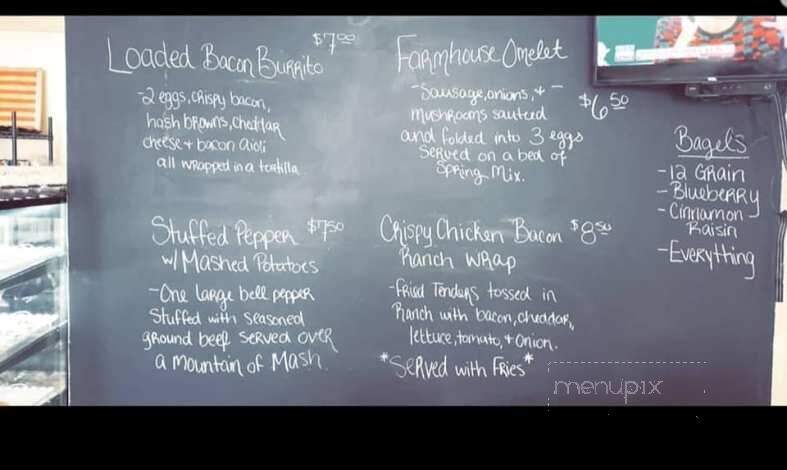 Loaded Bacon Burrito $7.00
-2 eggs, crispy bacon,
hash browns, cheddar
cheese + bacon aioli
all wrapped in a tortilla
Farmhouse Omelet
-Sausage, onions, + - $6.50
mushrooms sauteed
and folded into 3 eggs
served on a bed of
Spring Mix.
Stuffed Pepper $7.50
w/Mashed Potatoes
-One large bell pepper
stuffed with seasoned
ground beef served over
a mountain of Mash.
Crispy Chicken Bacon $8.50
Ranch Wrap
-Fried Tenders tossed in
Ranch with bacon, cheddar,
lettuce, tomato, + onion.
*Served with Fries*
Bagels
-12 Grain
-Blueberry
-Cinnamon
Raisin
-Everything
menupix